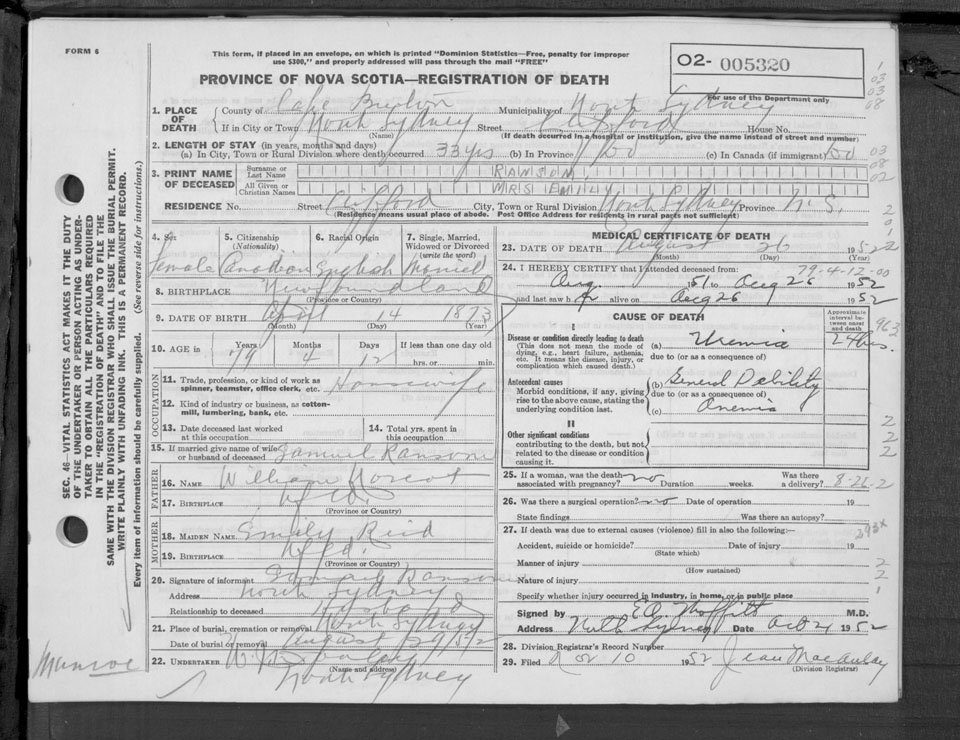 FORM 6
This form, if placed in an envelope, on which is printed "Dominion Statistics—Free, penalty for improper
use $300," and properly addressed will pass through the mail "FREE"
PROVINCE OF NOVA SCOTIA—REGISTRATION OF DEATH
O2- 005320
For use of the Department only
1. PLACE OF DEATH County of Cape Breton Municipality of North Sydney
If in City or Town North Sydney Street House No.
(Name) (If death occurred in a hospital or institution, give the name instead of street and number)
2. LENGTH OF STAY (in years, months and days)
(a) In City, Town or Rural Division where death occurred 33 yrs (b) In Province 50 (c) In Canada (if immigrant) 50
3. PRINT NAME OF DECEASED Surname or Last Name RANSOM
All Given or Christian Names MRS EMILY
RESIDENCE No. Street City, Town or Rural Division North Sydney Province N.S.
(Residence means usual place of abode. Post Office Address for residents in rural parts not sufficient)
4. Sex 5. Citizenship (Nationality) 6. Racial Origin 7. Single, Married, Widowed or Divorced (write the word)
Female Canadian English Married
8. BIRTHPLACE Newfoundland
(Province or Country)
9. DATE OF BIRTH April 14 1873
(Month) (Day) (Year)
10. AGE in Years Months Days If less than one day old
79 4 12 hrs. or min.
OCCUPATION
11. Trade, profession, or kind of work as spinner, teamster, office clerk, etc. Housewife
12. Kind of industry or business, as cotton-mill, lumbering, bank, etc.
13. Date deceased last worked at this occupation
14. Total yrs. spent in this occupation
15. If married give name of wife or husband of deceased Samuel Ransom
FATHER
16. NAME William
17. BIRTHPLACE Nfld.
(Province or Country)
MOTHER
18. MAIDEN NAME Emily Reid
19. BIRTHPLACE Nfld.
(Province or Country)
20. Signature of informant Samuel Ransom
Address North Sydney
Relationship to deceased Husband
21. Place of burial, cremation or removal North Sydney
Date of burial or removal August
22. UNDERTAKER
(Name and address)
North Sydney
MEDICAL CERTIFICATE OF DEATH
23. DATE OF DEATH August 26 1952
(Month) (Day) (Year)
79-4-12-00
24. I HEREBY CERTIFY that I attended deceased from:
Aug. 1951 to Aug 26 1952
and last saw h er alive on Aug 26 1952
CAUSE OF DEATH
Approximate interval between onset and death
I
Disease or condition directly leading to death
(This does not mean the mode of dying, e.g., heart failure, asthenia, etc. It means the disease, injury, or complication which caused death.)
(a) Uremia 24 hrs.
due to (or as a consequence)
Antecedent causes
Morbid conditions, if any, giving rise to the above cause, stating the underlying condition last.
(b) General Debility
due to (or as a consequence)
(c) Anemia
II
Other significant conditions
contributing to the death, but not related to the disease or condition causing it.
25. If a woman, was the death associated with pregnancy? no Duration weeks. Was there a delivery?
8-26-2
26. Was there a surgical operation? no Date of operation 19
State findings Was there an autopsy?
27. If death was due to external causes (violence) fill in also the following:—
Accident, suicide or homicide? Date of injury 19
(State which)
Manner of injury
(How sustained)
Nature of injury
Specify whether injury occurred in industry, in home, or in public place
Signed by M.D.
Address North Sydney Date 1952
28. Division Registrar's Record Number
29. Filed Nov 10 1952 Jean MacAulay
(Division Registrar)
SEC. 46—VITAL STATISTICS ACT MAKES IT THE DUTY
OF THE UNDERTAKER OR PERSON ACTING AS UNDER-
TAKER TO OBTAIN ALL THE PARTICULARS REQUIRED
IN THE "REGISTRATION OF DEATH" AND TO FILE THE
SAME WITH THE DIVISION REGISTRAR WHO SHALL ISSUE THE BURIAL PERMIT.
WRITE PLAINLY WITH UNFADING INK. THIS IS A PERMANENT RECORD.
Every item of information should be carefully supplied. (See reverse side for instructions.)
Munroe